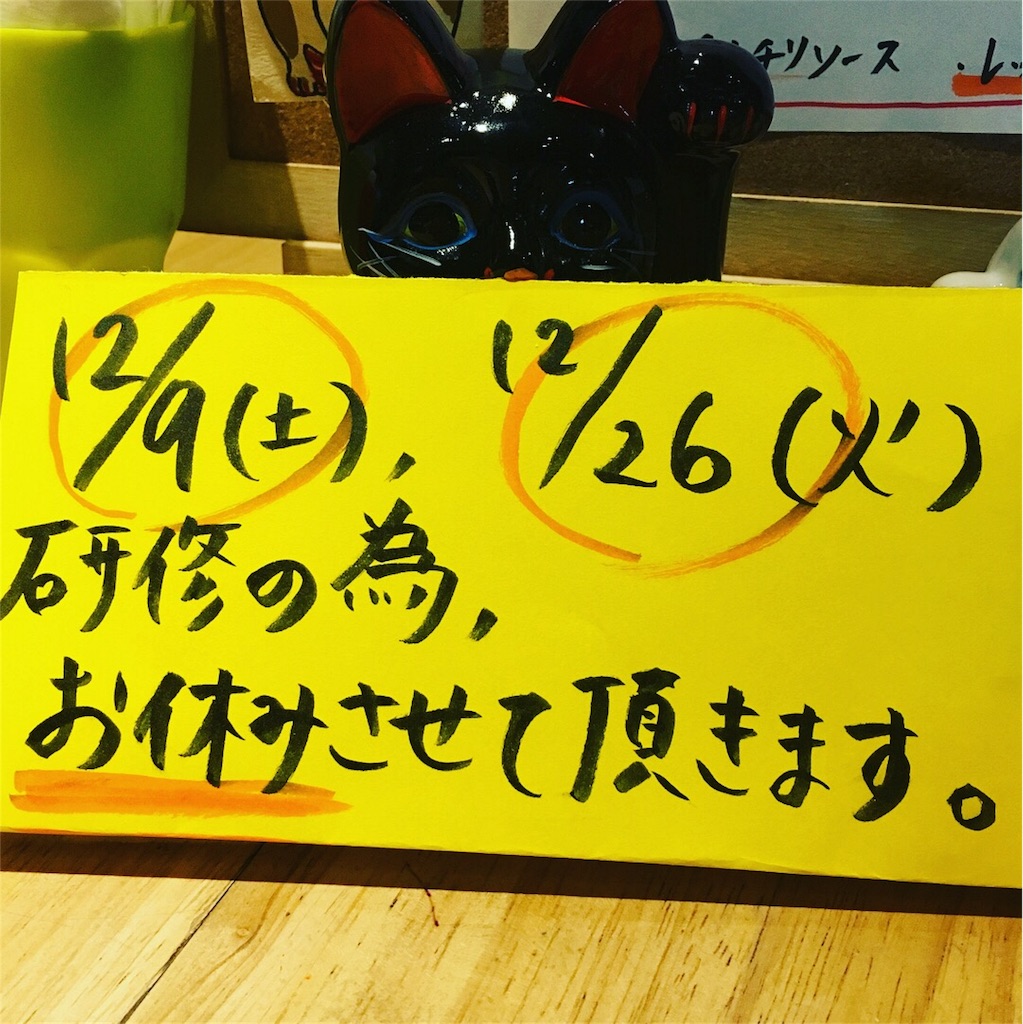 チリソース
12/9(土), 12/26(火)
研修の為,
お休みさせて頂きます。